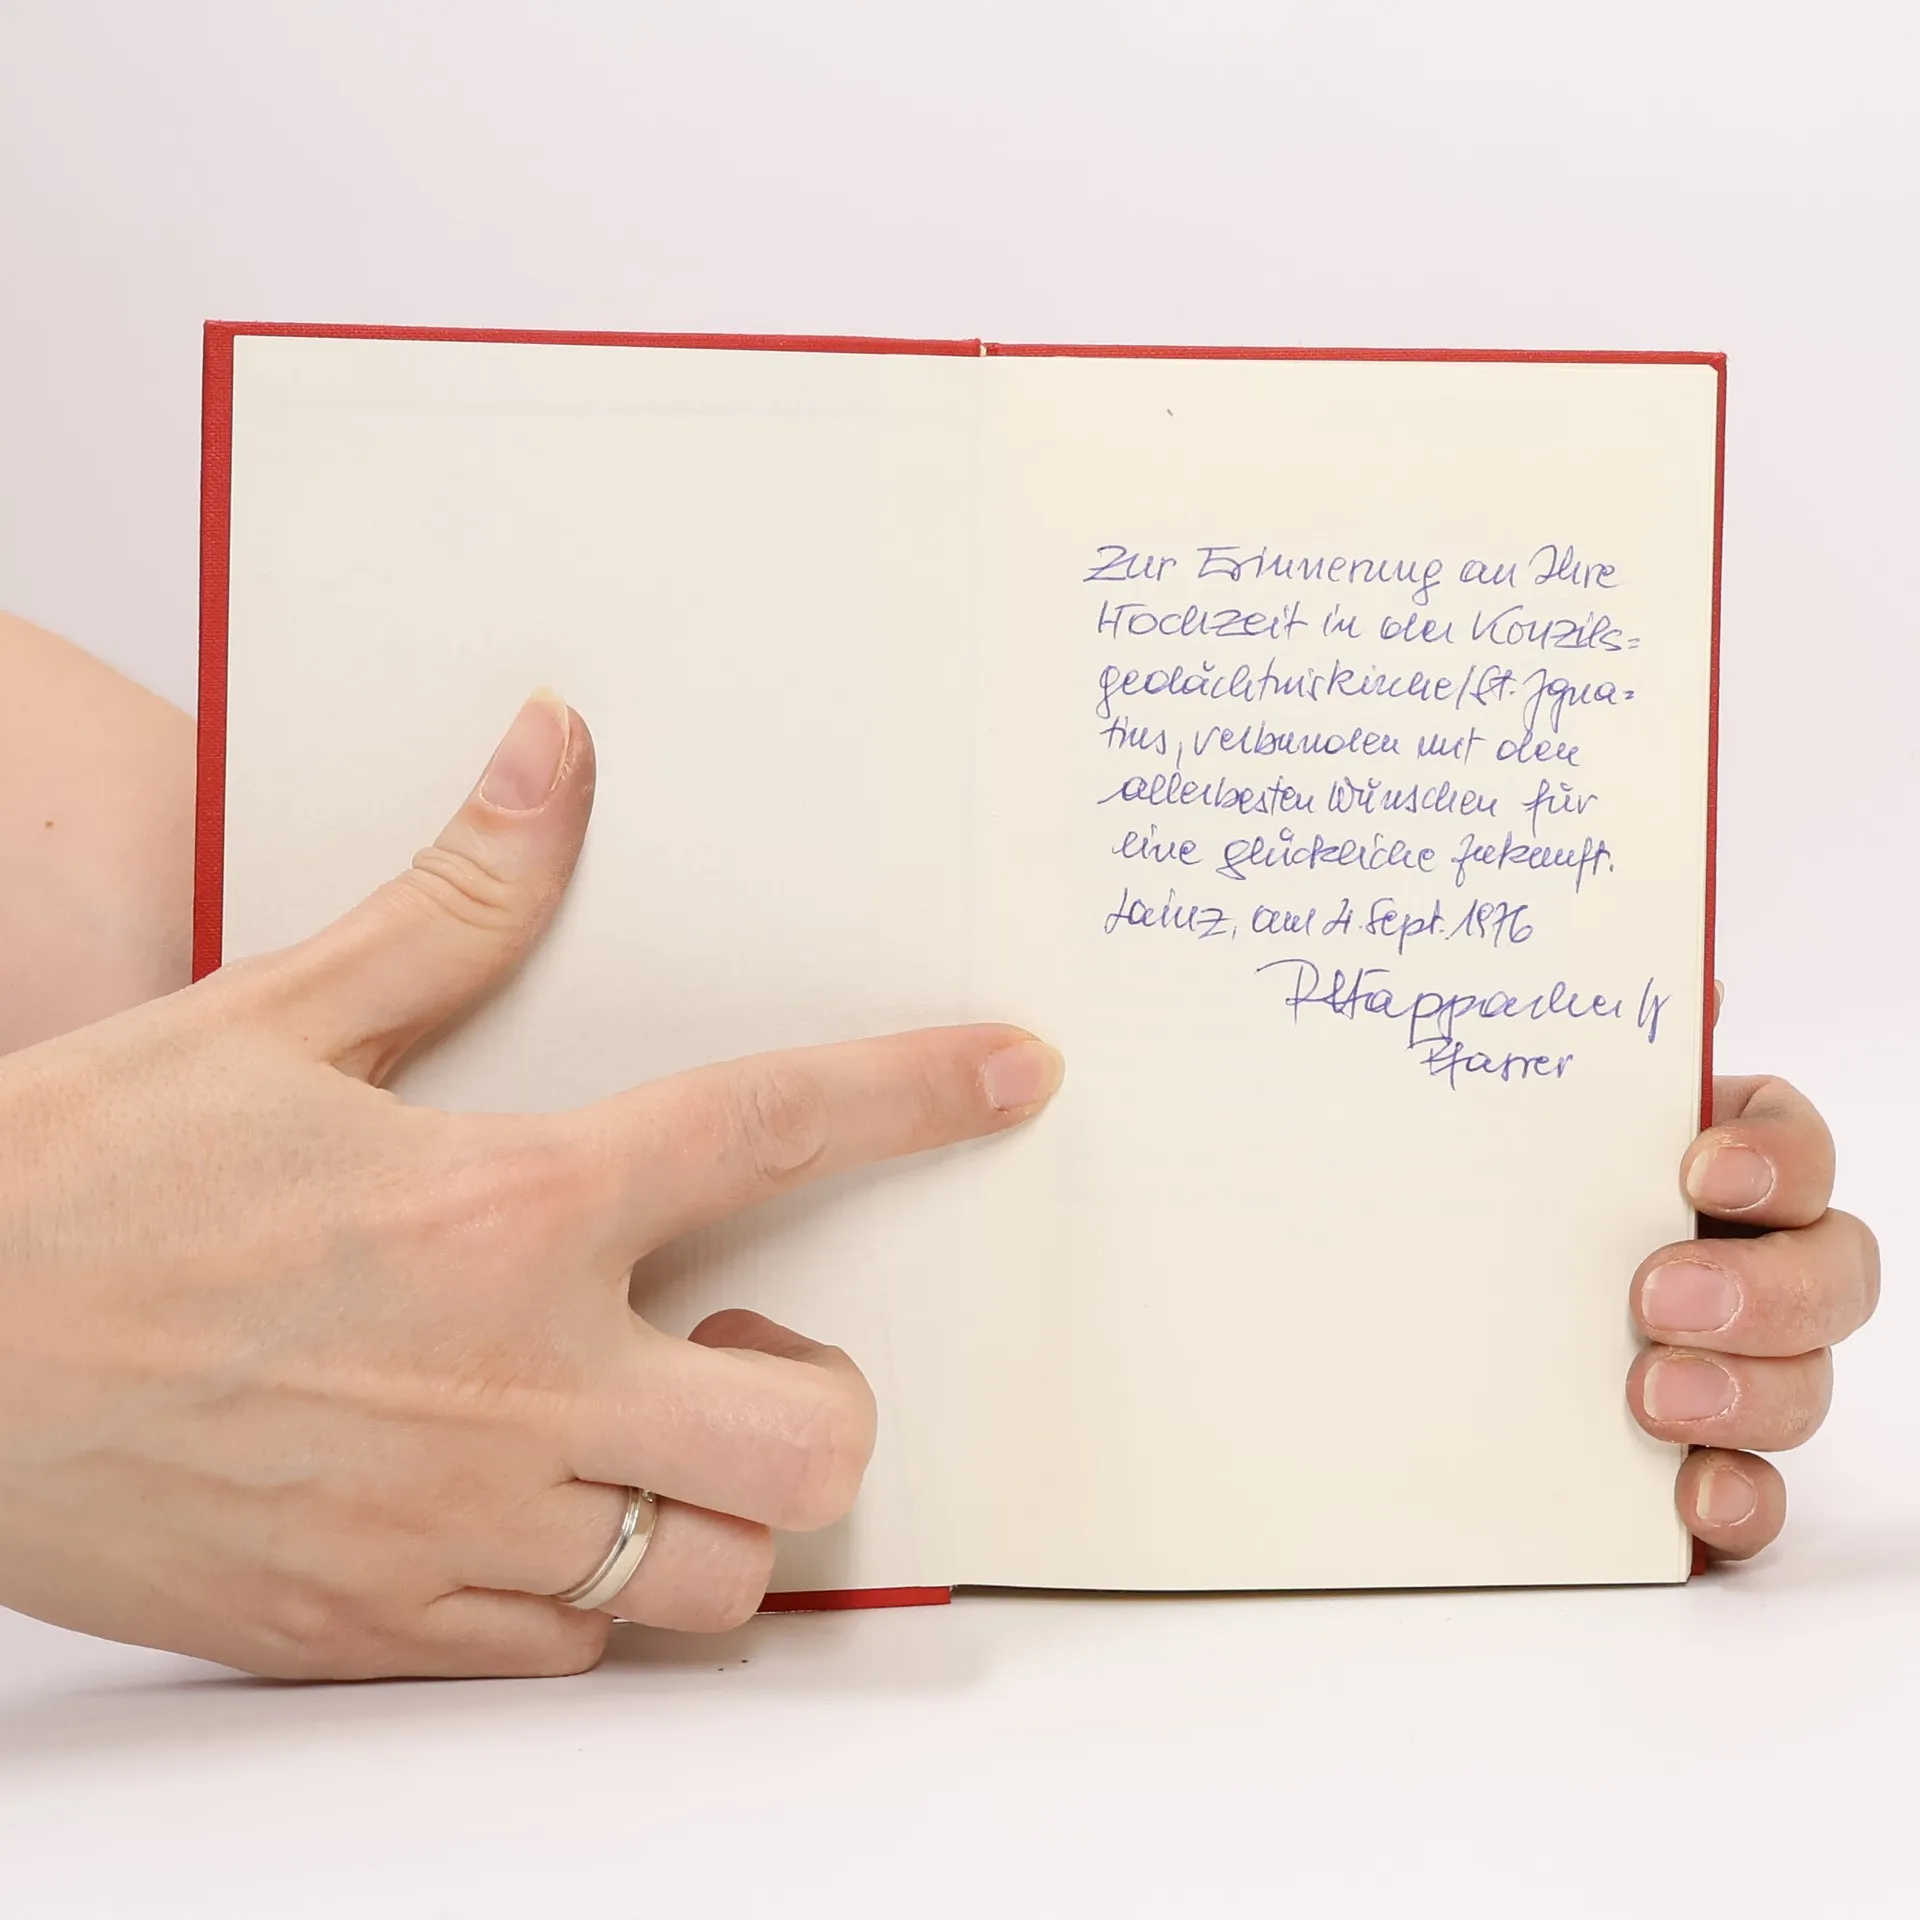 Zur Erinnerung an Ihre
Hochzeit in der Konzils=
gedächtniskirche/St. Igna=
tius, verbunden mit den
allerbesten Wünschen für
eine glückliche Zukunft.
Lainz, am 4. Sept. 1976
Pfarrer